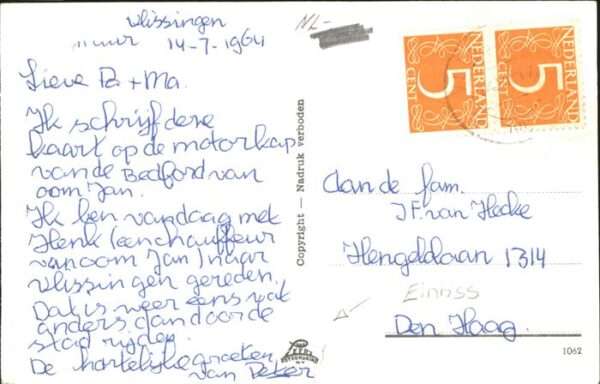 Vlissingen
14-7-1964
NL-
Lieve Pa + Ma.
Ik schrijf deze
kaart op de motorkap
van de Bedford van
oom Jan.
Ik ben vandaag met
Henk (een chauffeur
van oom Jan) naar
Vlissingen gereden.
Dat is weer eens wat
anders dan door de
stad rijden.
De hartelijke groeten
van Peter
Copyright — Nadruk verboden
NEDERLAND
5
CENT
NEDERLAND
5
CENT
Aan de fam.
J.F. van Hecke
Hengelolaan 1314
Den Haag.
1062